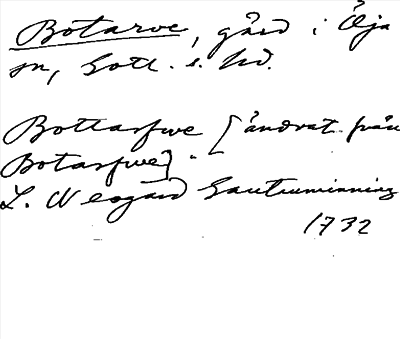 Botarve, gård i Öja
sn, Gotl. s. hd.
Bottarfwe [ändrat från
Botarfwe] -
L. Neogard Gautuminning
1732